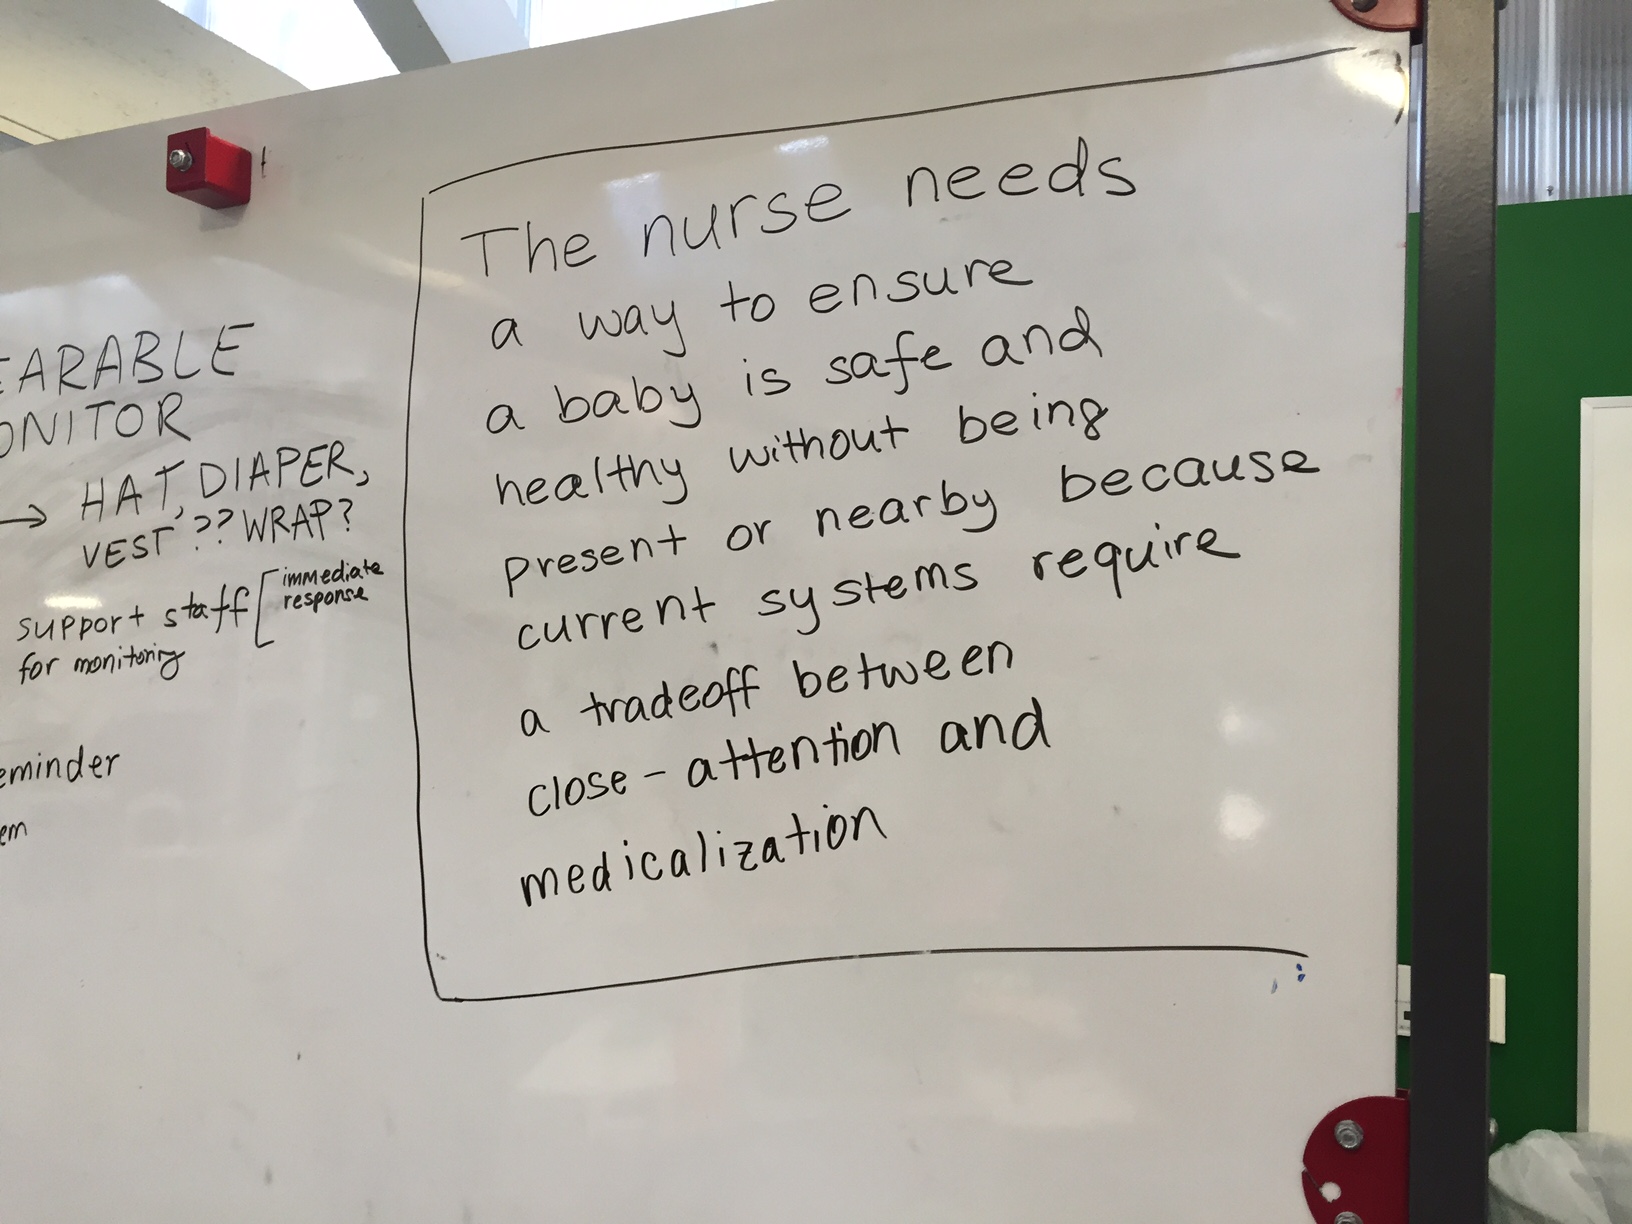 EARABLE
ONITOR
→ HAT, DIAPER,
VEST ?? WRAP?
support staff [ immediate
response
for monitoring
eminder
em
The nurse needs
a way to ensure
a baby is safe and
healthy without being
present or nearby because
current systems require
a tradeoff between
close-attention and
medicalization